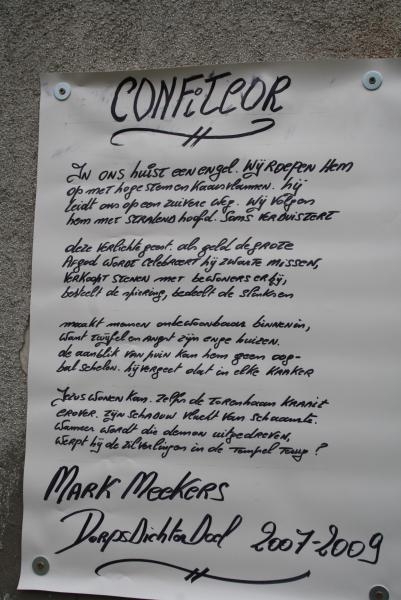 CONFiTEOR
IN ONS huist een engel. Wij Roepen Hem
op met hoge stem en kaarsvlammen. hij
leidt ons op een zuivere weg. Wij volgen
hem met stralend hoofd. Soms verduistert
deze verlichte geest. als geld de grote
Afgod wordt celebreert hij zwarte missen,
verkoopt stenen met bewoners erbij,
beveelt de spierring, bedeelt de slanksen
maakt mensen onbewoonbaar binnenin,
want twijfel en angst zijn enge huizen.
de aanblik van puin kan hem geen oog-
bal schelen. hij vergeet dat in elke kraker
Jezus wonen kan. Zelfs de torenhaan kraait
erover. zijn schaduw vlucht van schaamte.
Wanneer wordt die demon uitgedreven,
werpt hij de zilverlingen in de tempel terug?
MARK MEEKERS
DorpsDichter Doel 2007-2009